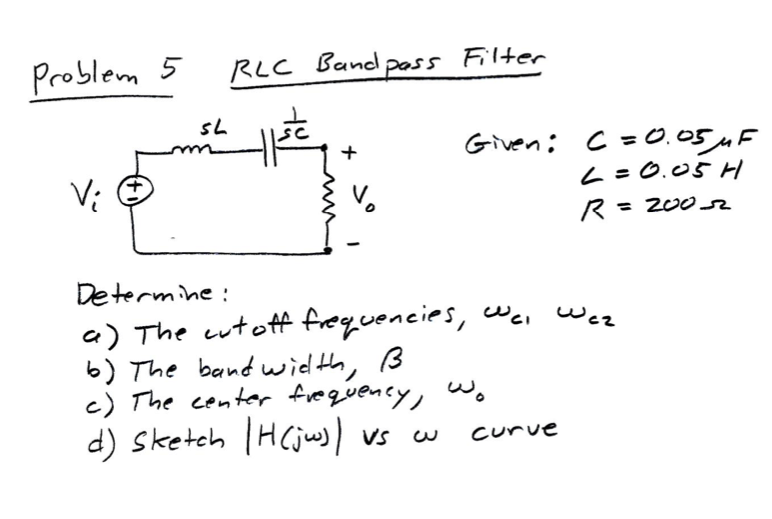 Problem 5 RLC Bandpass Filter
sL
1/sC
Vi
+
-
+
Vo
-
Given: C = 0.05 μF
L = 0.05 H
R = 200 Ω
Determine:
a) The cutoff frequencies, ωc1 ωc2
b) The bandwidth, β
c) The center frequency, ωo
d) Sketch |H(jω)| vs ω curve